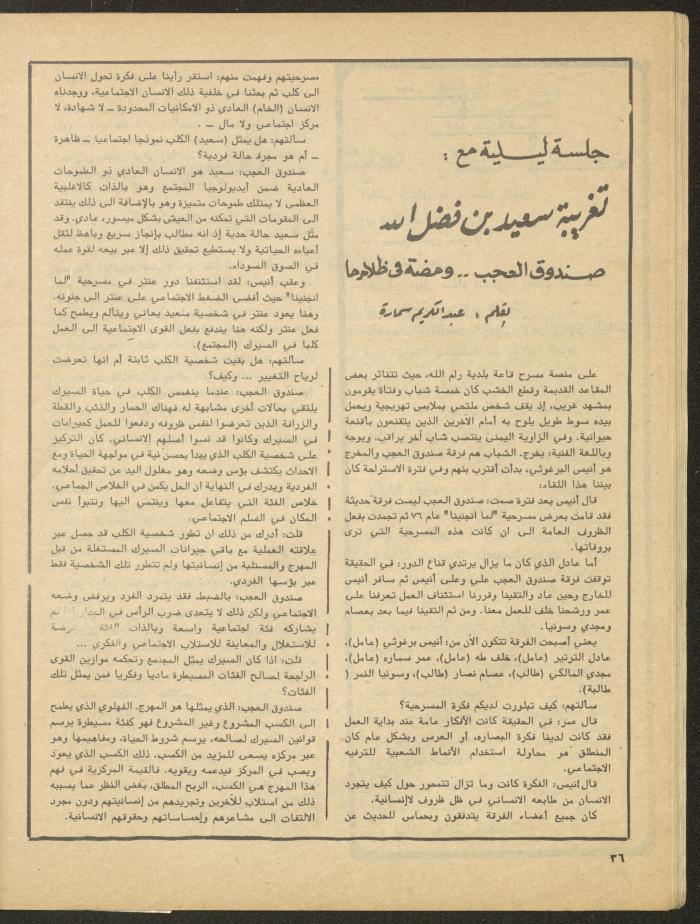 جلسة ليلية مع :
تغريبة سعيد بن فضل الله
صندوق العجب .. ومضة في ظلام ما
بقلم : عبد الكريم سمارة
على منصة مسرح قاعة بلدية رام الله، حيث تتناثر بعض
المقاعد القديمة وقطع الخشب كان خمسة شباب وفتاة يقومون
بمشهد غريب، إذ يقف شخص ملتحي بملابس تهريجية ويحمل
بيده سوط طويل يلوح به أمام الآخرين الذين يتقنعون بأقنعة
حيوانية. وفي الزاوية اليمنى ينتصب شاب آخر يراقب، ويوجه
وباللغة الفنية: يخرج. الشباب هم فرقة صندوق العجب والمخرج
هو أنيس البرغوثي، بدأت أقترب بنهم وفي فترة الاستراحة كان
بيننا هذا اللقاء:
قال أنيس بعد فترة صمت: صندوق العجب ليست فرقة حديثة
فقد قامت بعرض مسرحية "لما انجنينا" عام ٧٦ ثم تجمدت بفعل
الظروف العامة الى ان كانت هذه المسرحية التي ترى
بروفاتها.
أما عادل الذي كان ما يزال يرتدي قناع الدور: في الحقيقة
توقفت فرقة صندوق العجب علي وعلى أنيس ثم سافر أنيس
للخارج وحين عاد والتقينا وقررنا استئناف العمل تعرفنا على
عمر ورشحنا خلف للعمل معنا. ومن ثم التقينا فيما بعد بعصام
ومجدي وسونيا.
يعني أصبحت الفرقة تتكون الآن من: أنيس برغوثي (عامل)،
عادل الترتير (عامل)، خلف طه (عامل)، عمر سماره (عامل)،
مجدي المالكي (طالب)، عصام نصار (طالب)، وسونيا النمر (
طالبة).
سألتهم: كيف تبلورت لديكم فكرة المسرحية؟
قال عمر: في الحقيقة كانت الأفكار عامة عند بداية العمل
فقد كانت لدينا فكرة البصاره، أو العرس وبشكل عام كان
المنطلق هو محاولة استخدام الأنماط الشعبية للترفيه
الاجتماعي.
قال أنيس: الفكرة كانت وما تزال تتمحور حول كيف يتجرد
الانسان من طابعه الانساني في ظل ظروف لاإنسانية.
كان جميع أعضاء الفرقة يتدفقون وبحماس للحديث عن
مسرحيتهم وفهمت منهم: استقر رأينا على فكرة تحول الانسان
الى كلب ثم بحثنا في خلفية ذلك الانسان الاجتماعية، ووجدناه
الانسان (الخام) العادي ذو الامكانيات المحدودة ــ لا شهادة، لا
مركز اجتماعي ولا مال ــ .
سألتهم: هل يمثل (سعيد) الكلب نموذجا اجتماعيا ــ ظاهرة
ــ أم هو مجرد حالة فردية؟
صندوق العجب: سعيد هو الانسان العادي ذو الطموحات
العادية ضمن أيديولوجيا المجتمع وهو بالذات كالاغلبية
العظمى لا يمتلك طموحات متميزة وهو بالإضافة الى ذلك ينتقد
الى المقومات التي تمكنه من العيش بشكل ميسور، عادي. وقد
مثل سعيد حالة حدية إذ انه مطالب بإنجاز سريع وباهظ لثقل
أعباءه الحياتية ولا يستطيع تحقيق ذلك إلا عبر بيعه لقوة عمله
في السوق السوداء.
وعقب أنيس: لقد استئنفنا دور عنتر في مسرحية "لما
انجنينا" حيث أفضى الضغط الاجتماعي على عنتر الى جنونه.
وهنا يعود عنتر في شخصية سعيد يعاني ويتألم ويطمح كما
فعل عنتر ولكنه هنا يندفع بفعل القوى الاجتماعية الى العمل
كلبا في السيرك (المجتمع).
سألتهم: هل بقيت شخصية الكلب ثابتة أم انها تعرضت
لرياح التغيير ... وكيف؟
صندوق العجب: عندما ينغمس الكلب في حياة السيرك
يلتقي بحالات أخرى مشابهة له فهناك الحمار والذئب والقطة
والزرافة الذين تعرضوا لنفس ظروفه ودفعوا للعمل كحيوانات
في السيرك وكانوا قد نسوا أصلهم الإنساني. كان التركيز
على شخصية الكلب الذي يبدأ بحسن نية في مواجهة الحياة ومع
الاحداث يكتشف بؤس وضعه وهو مغلول اليد عن تحقيق أحلامه
الفردية ويدرك في النهاية ان الحل يكمن في الخلاص الجماعي.
خلاص الفئة التي يتفاعل معها وينتمي اليها وتتبوأ نفس
المكان في السلم الاجتماعي.
قلت: أدرك من ذلك ان تطور شخصية الكلب قد حصل عبر
علاقته العملية مع باقي حيوانات السيرك المستغلة من قبل
المهرج والمستلبة من إنسانيتها ولم تتطور تلك الشخصية فقط
عبر بؤسها الفردي.
صندوق العجب: بالضبط، فقد يتمرد الفرد ويرفض وضعه
الاجتماعي ولكن ذلك لا يتعدى ضرب الرأس في لم
يشاركه فئة اجتماعية واسعة وبالذات الفئة
للاستغلال والمعاينة للاستلاب الاجتماعي والفكري ...
قلت: اذا كان السيرك يمثل المجتمع وتحكمه موازين القوى
الراجحة لصالح الفئات المسيطرة ماديا وفكريا فمن يمثل تلك
الفئات؟
صندوق العجب: الذي يمثلها هو المهرج. الفهلوي الذي يطمح
الى الكسب المشروع وغير المشروع فهو كفئة مسيطرة يرسم
قوانين السيرك لصالحه، يرسم شروط الحياة، ومفاهيمها وهو
عبر مركزه يسعى للمزيد من الكسب. ذلك الكسب الذي يعود
ويصب في المركز فيدعمه ويقويه. فالقيمة المركزية في فهم
هذا المهرج هي الكسب، الربح المطلق، بغض النظر عما يسببه
ذلك من استلاب للآخرين وتجريدهم من إنسانيتهم ودون مجرد
الالتفات الى مشاعرهم وإحساساتهم وحقوقهم الانسانية.
٣٦